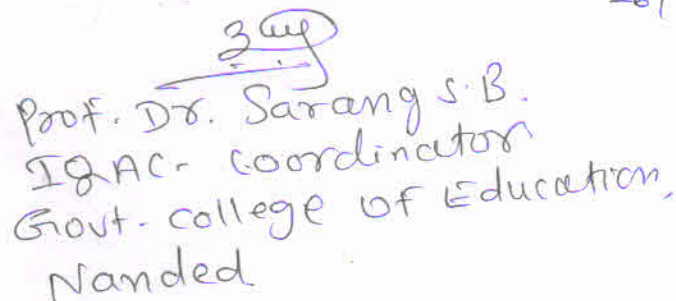 Prof. Dr. Sarang S.B.
IQAC- Coordinator
Govt. college of Education,
Nanded